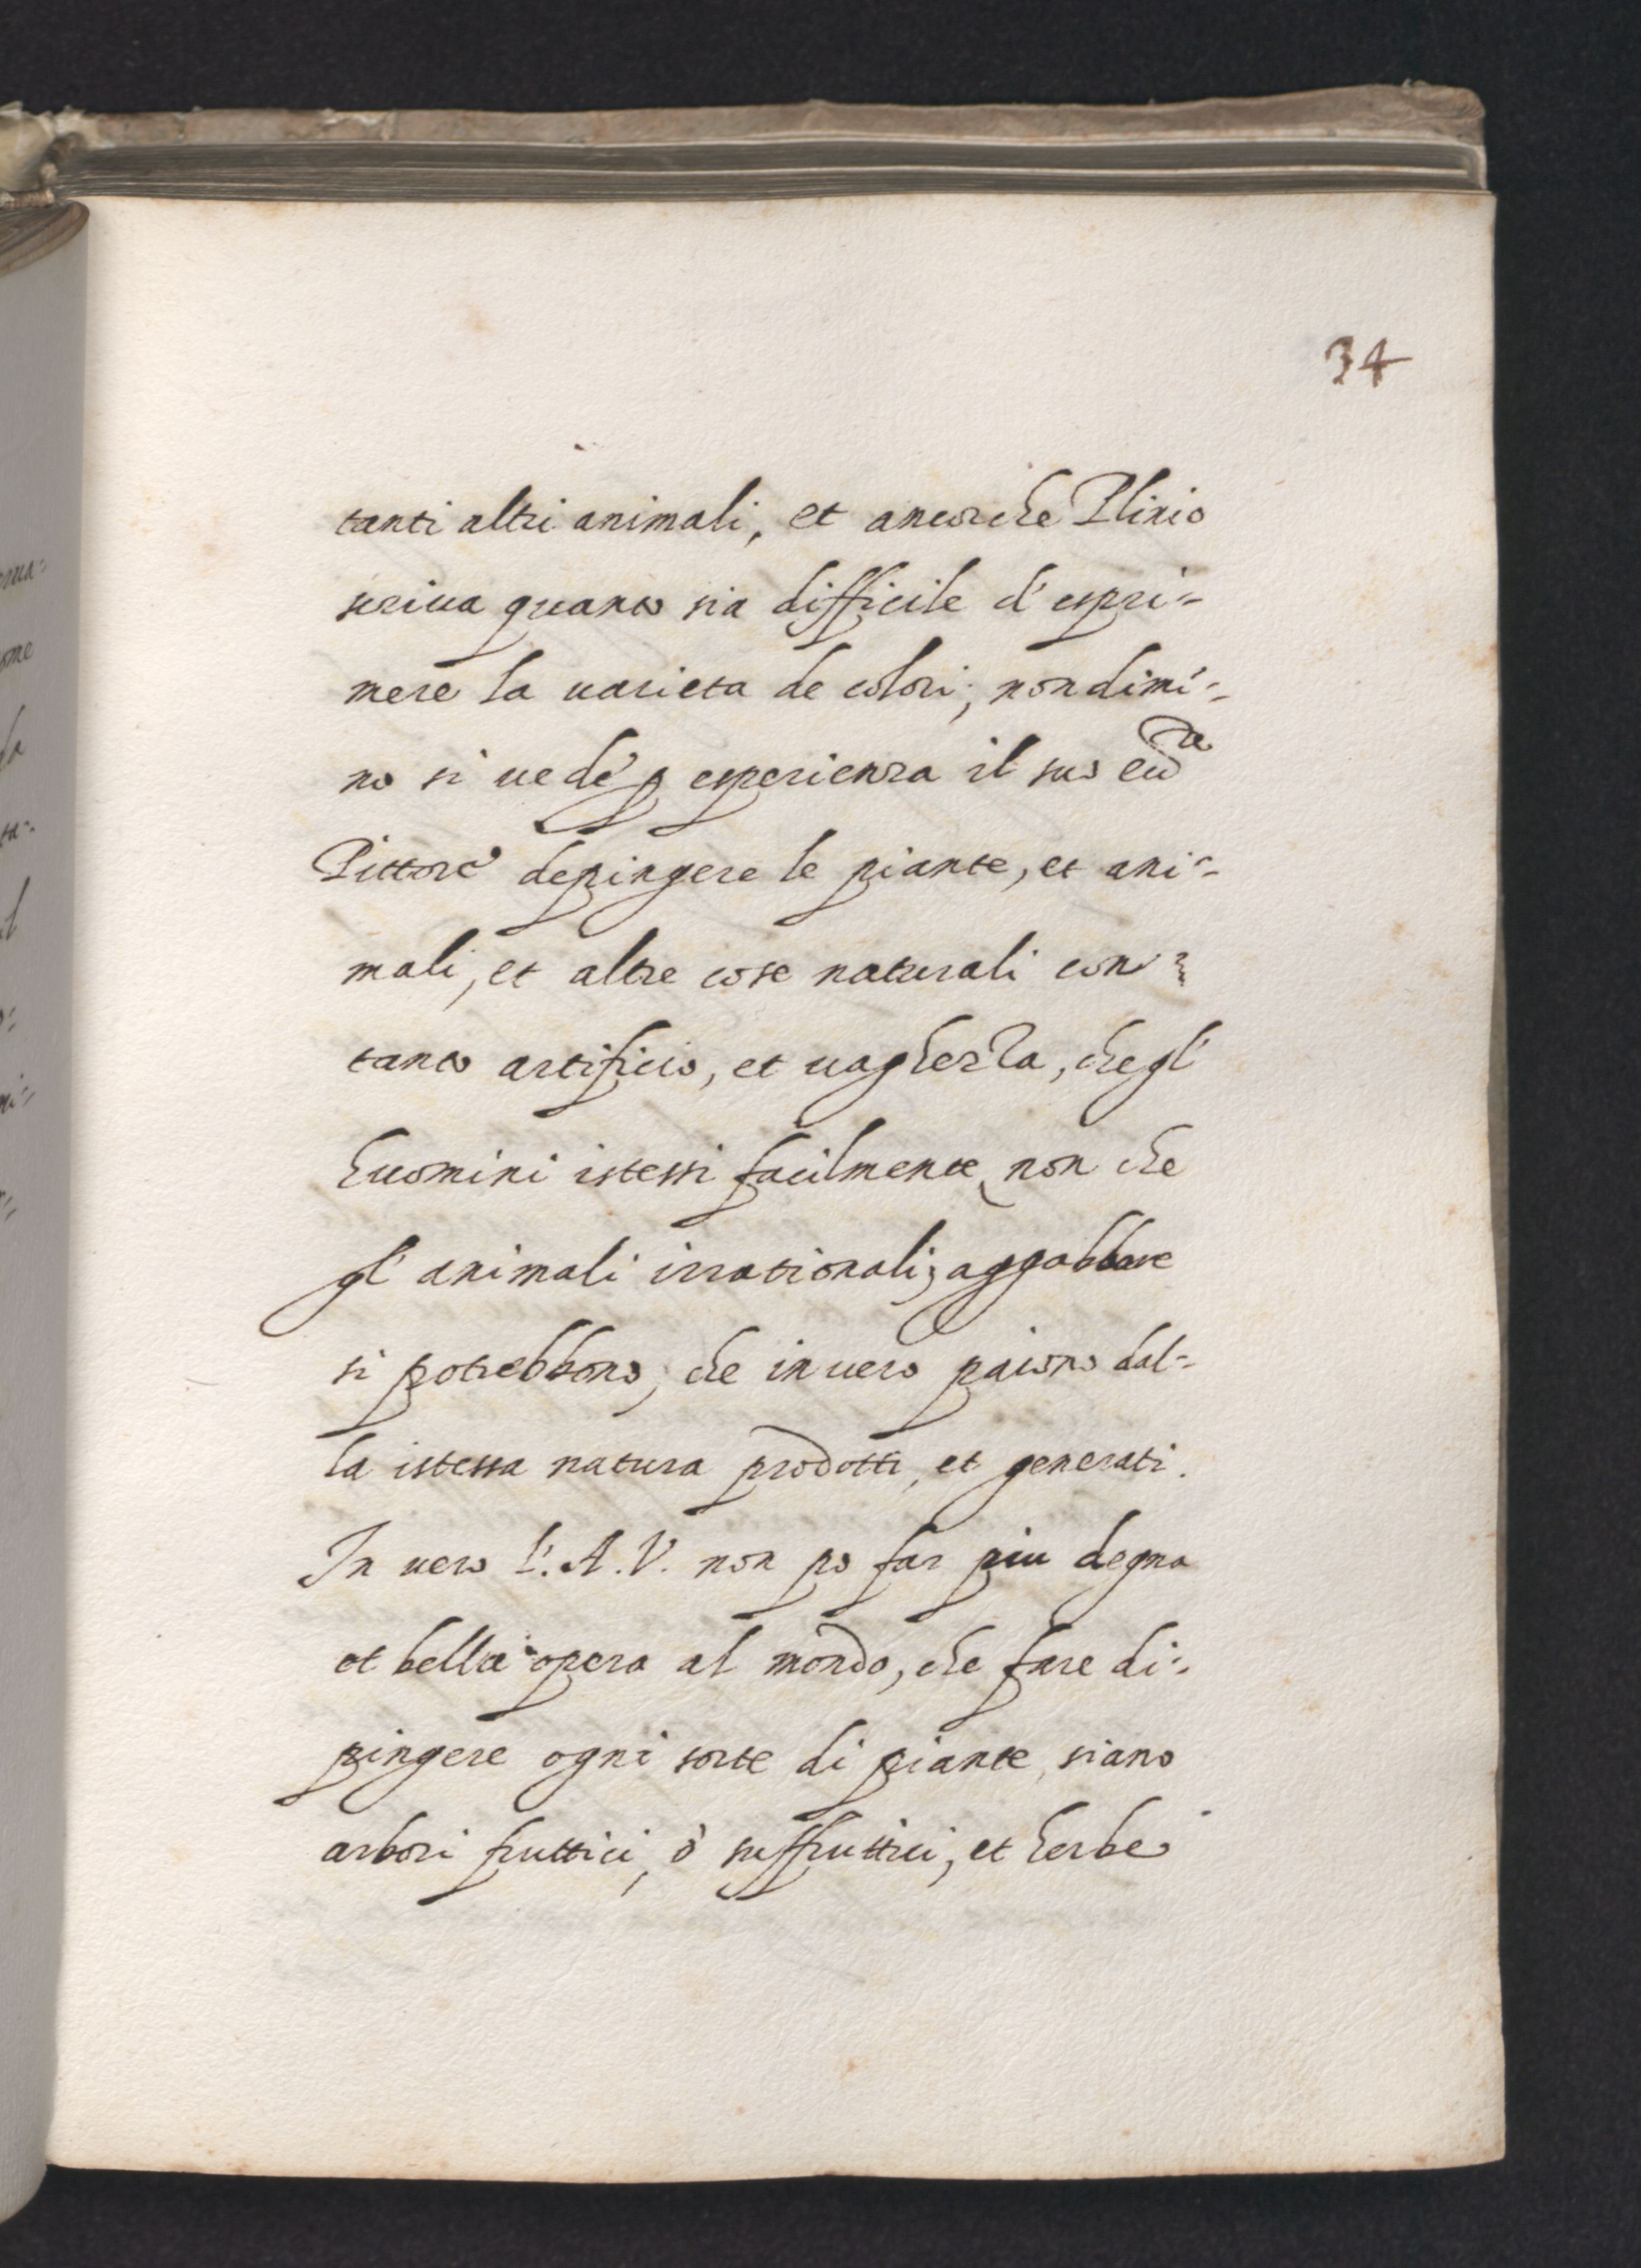 34
tanti altri animali, et ancorche Plinio
scriua quanto sia difficile d'espri=
mere la uarieta de colori; nondimi=
no si uede p esperienza il suo
Pittore depingere le piante, et ani=
mali, et altre cose naturali con=
tanto artificio, et uaghezza, che gl'
huomini istessi facilmente, non che
gl' animali irrationali, aggabbare
si potrebbono, che in uero paiono dal=
la istessa natura prodotti, et generati.
In uero l'A.V. non po far piu degna
et bella opera al mondo, che fare di=
pingere ogni sorte di piante, siano
arbori fruttici, ò suffruttici, et herbe